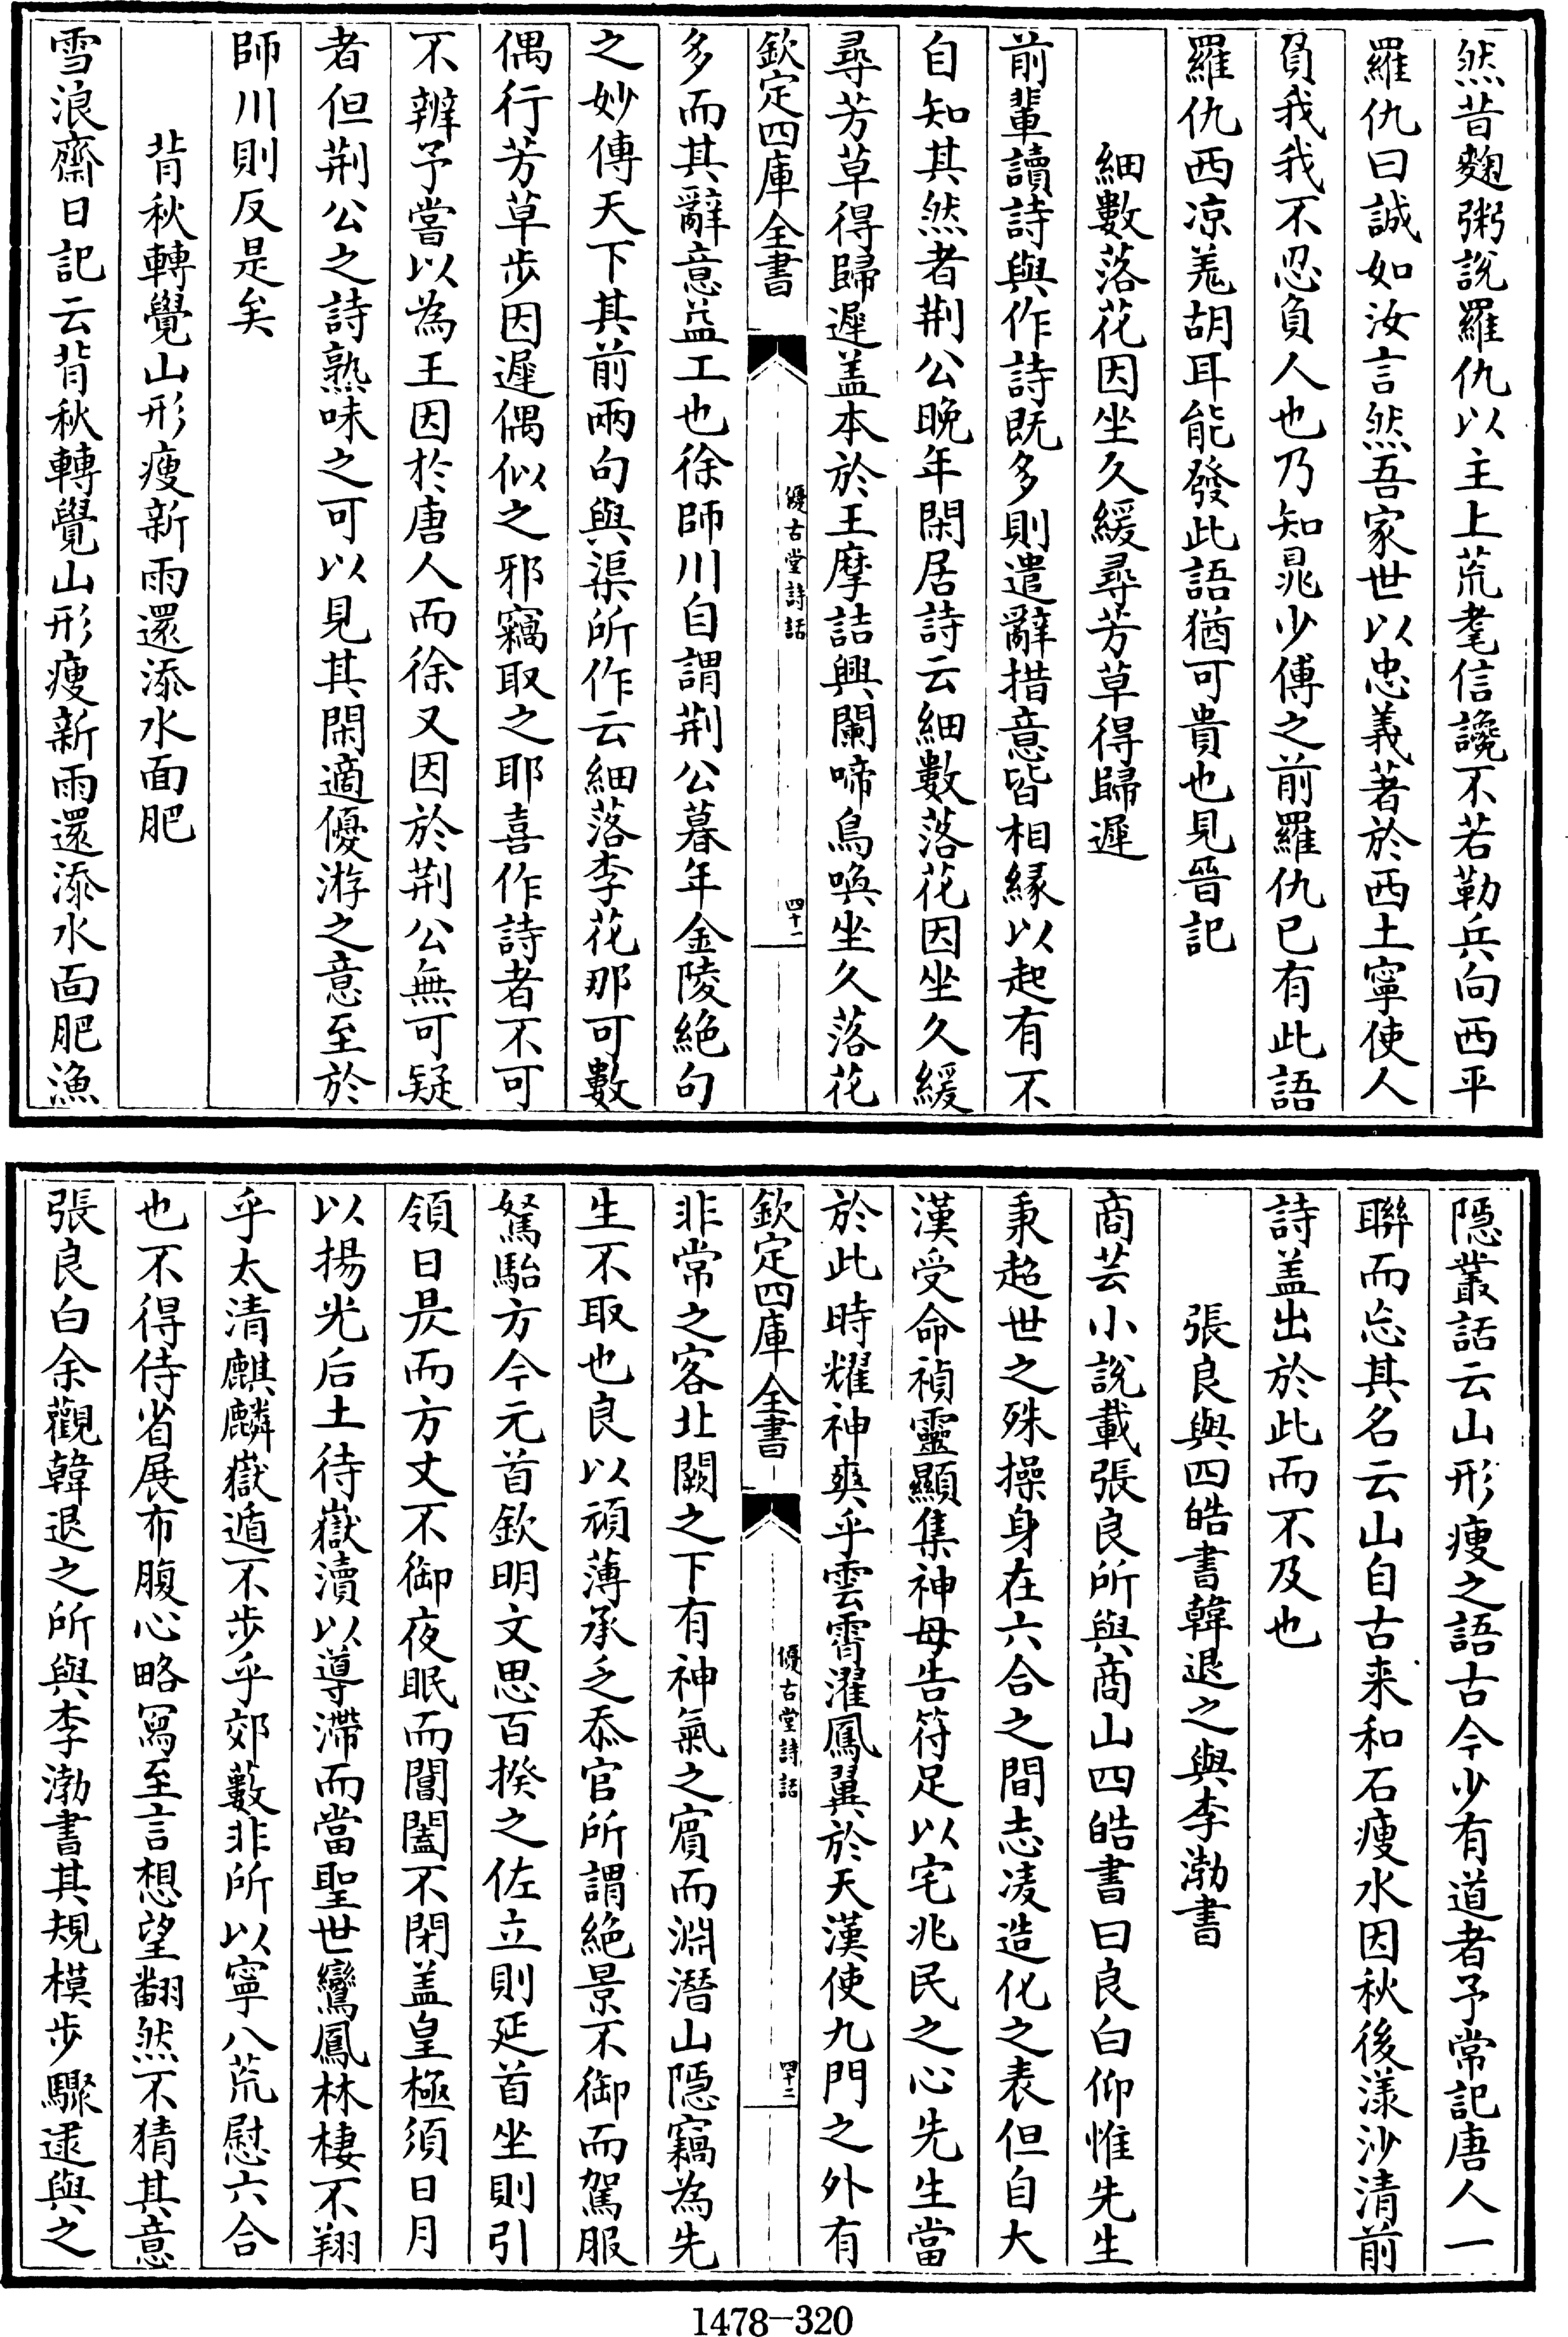 然昔麴粥說羅仇以主上荒耄信讒不若勒兵向西平
羅仇曰誠如汝言然吾家世以忠義著於西土寧使人
負我我不忍負人也乃知晁少傅之前羅仇已有此語
羅仇西凉羗胡耳能發此語猶可貴也見晉記
細數落花因坐久緩尋芳草得歸遲
前輩讀詩與作詩既多則遣辭措意皆相緣以起有不
自知其然者荆公晚年閑居詩云細數落花因坐久緩
尋芳草得歸遲盖本於王摩詰興闌啼鳥喚坐久落花
欽定四庫全書
優古堂詩話
四十一
多而其辭意益工也徐師川自謂荆公暮年金陵絶句
之妙傳天下其前兩句與渠所作云細落李花那可數
偶行芳草步因遲偶似之邪竊取之耶喜作詩者不可
不辨予嘗以為王因於唐人而徐又因於荆公無可疑
者但荆公之詩熟味之可以見其閑適優游之意至於
師川則反是矣
背秋轉覺山形瘦新雨還添水面肥
雪浪齋日記云背秋轉覺山形瘦新雨還添水面肥漁
隱叢話云山形瘦之語古今少有道者予常記唐人一
聯而忘其名云山自古来和石瘦水因秋後漾沙清前
詩盖出於此而不及也
張良與四皓書韓退之與李渤書
商芸小說載張良所與商山四皓書曰良白仰惟先生
秉超世之殊操身在六合之間志凌造化之表但自大
漢受命禎靈顯集神母告符足以宅兆民之心先生當
於此時耀神爽乎雲霄濯鳳翼於天漢使九門之外有
欽定四庫全書
優古堂詩話
四十二
非常之客北闕之下有神氣之賓而淵潛山隱竊為先
生不取也良以頑薄承乏忝官所謂絶景不御而駕服
駑駘方今元首欽明文思百揆之佐立則延首坐則引
領日昃而方丈不御夜眠而閶闔不閉盖皇極須日月
以揚光后土待嶽瀆以導滯而當聖世鸞鳳林棲不翔
乎太清麒麟嶽遁不步乎郊藪非所以寧八荒慰六合
也不得侍省展布腹心略寫至言想望翻然不猜其意
張良白余觀韓退之所與李渤書其規模步驟逮與之
1478—320